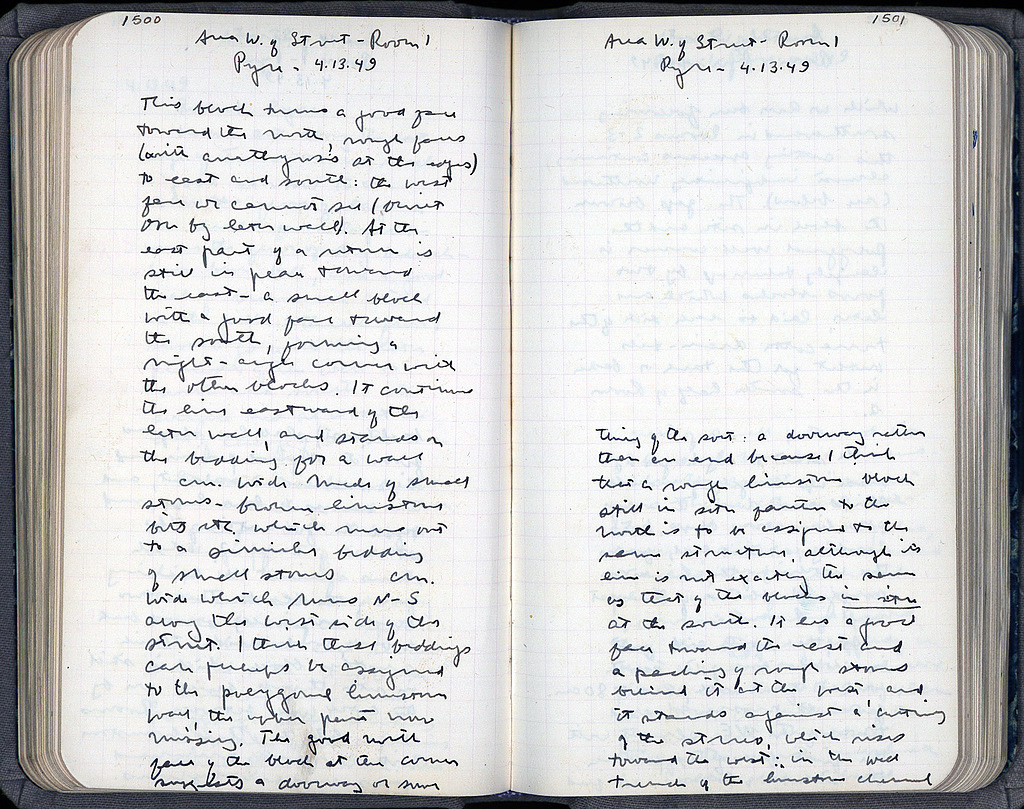 1500
Area W. of Street - Room 1
Pyre - 4.13.49
This block turns a good face
toward the north, rough faces
(with anathyrosis at the edges)
to east and south: the west
face we cannot see (built
over by later wall). At the
east part of a return is
still in place toward
the east - a small block
with a good face toward
the south, forming a
right-angle corner with
the other blocks. It continues
the line eastward of the
later wall, and stands on
the bedding for a wall
cm. wide made of small
stones - broken limestone
bits etc. which runs out
to a similar bedding
of small stones cm.
wide which runs N-S
along the west side of the
street. I think these beddings
can perhaps be assigned
to the polygonal limestone
wall, the upper part now
missing. The good north
face of the block at the corner
suggests a doorway or some
1501
Area W. of Street - Room 1
Pyre - 4.13.49
thing of the sort: a doorway rather
than an end because I think
that a rough limestone block
still in situ farther to the
north is to be assigned to the
same structure, although its
line is not exactly the same
as that of the blocks in situ
at the south. It has a good
face toward the east and
a packing of rough stones
behind it at the west and
it stands against a cutting
of the stereo, which rises
toward the west: in the
trench of the limestone channel